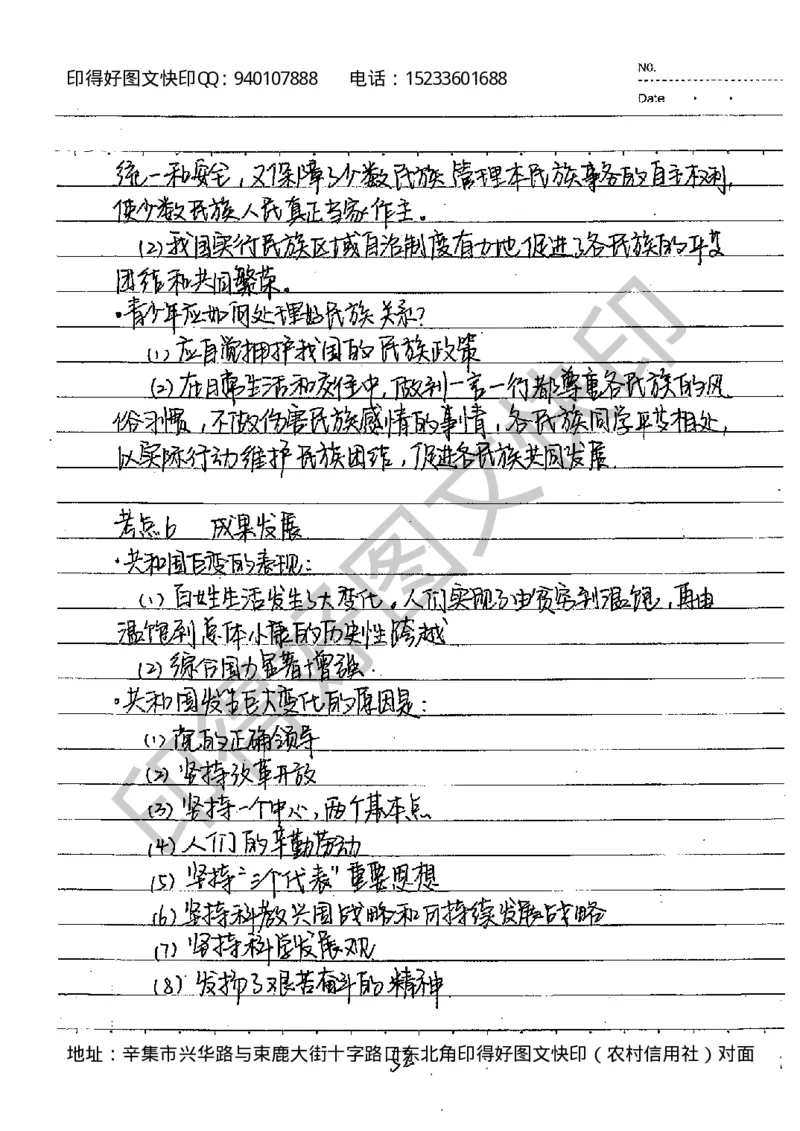 印得好图文快印QQ：940107888 电话：15233601688
NO.
Date
统一和安全，又保障了少数民族管理本民族事务的自主权利，
使少数民族人民真正当家作主。
(2)我国实行民族区域自治制度有力地促进了各民族的平等
团结和共同繁荣。
·青少年应如何处理好民族关系？
(1)应自觉拥护我国的民族政策
(2)在日常生活和交往中，做到一言一行都尊重各民族的风
俗习惯，不做伤害民族感情的事情，各民族同学平等相处，
以实际行动维护民族团结，促进各民族共同发展
考点6 成果发展
·共和国巨变的表现：
(1)百姓生活发生了大变化。人们实现了由贫穷到温饱，再由
温饱到总体小康的历史性跨越
(2)综合国力显著增强.
·共和国发生巨大变化的原因是：
(1)党的正确领导
(2)坚持改革开放
(3)坚持一个中心，两个基本点
(4)人们的辛勤劳动
(5)坚持“三个代表”重要思想
(6)坚持科教兴国战略和可持续发展战略
(7)坚持科学发展观
(8)发扬了艰苦奋斗的精神
印得好图文快印
地址：辛集市兴华路与束鹿大街十字路口东北角印得好图文快印（农村信用社）对面
52